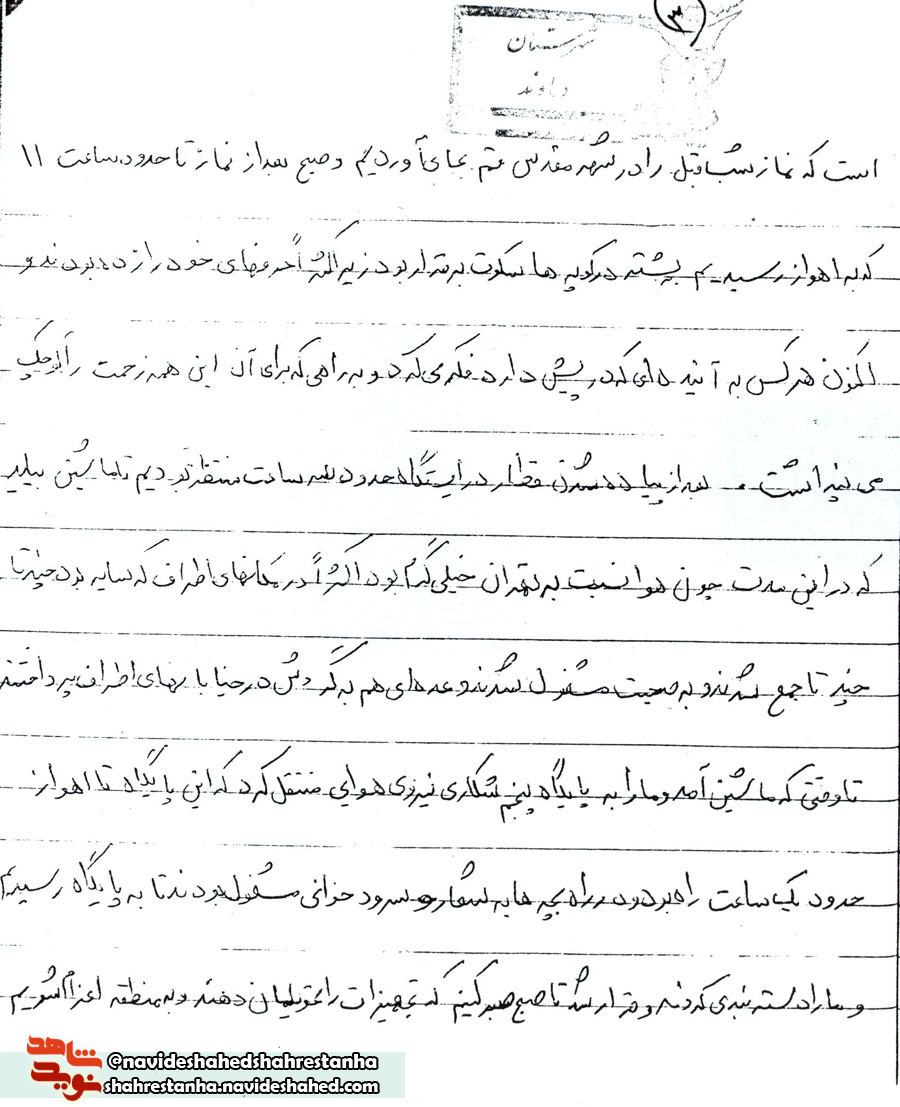 ۳
شهرستان
دماوند
است که نماز شب قبل را در شهر مقدس قم بجای آوردیم و صبح بعد از نماز تا حدود ساعت ۱۱
که به اهواز رسیدیم بیشتر در کوپه ها سکوت برقرار بود زیرا اکثراً حرفهای خود را زده بودند و
اکنون هر کس به آینده ای که در پیش دارد فکر می کرد و به راهی که برای آن این همه زحمت را کوچک
می پنداشت . بعد از پیاده شدن قطار در ایستگاه حدود سه ساعت منتظر بودیم تا ماشین بیاید
که در این مدت چون هوا نسبت به تهران خیلی گرم بود اکثراً در مکانهای اطراف که سایه بود چند تا
چند تا جمع شدند و به صحبت مشغول شدند و عده ای هم به گردش در خیابانهای اطراف پرداختند
تا وقتی که ماشین آمد و ما را به پایگاه پنجم شکاری نیروی هوایی منتقل کرد که این پایگاه تا اهواز
حدود یک ساعت راه بود و در راه بچه ها به شعار و سرود خوانی مشغول بودند تا به پایگاه رسیدیم
و ما را دسته بندی کردند و قرار شد تا صبح صبر کنیم که تجهیزات را تحویلمان دهند و به منطقه اعزام شویم
نوید شاهد
@navideshahedshahrestanha
shahrestanha.navideshahed.com